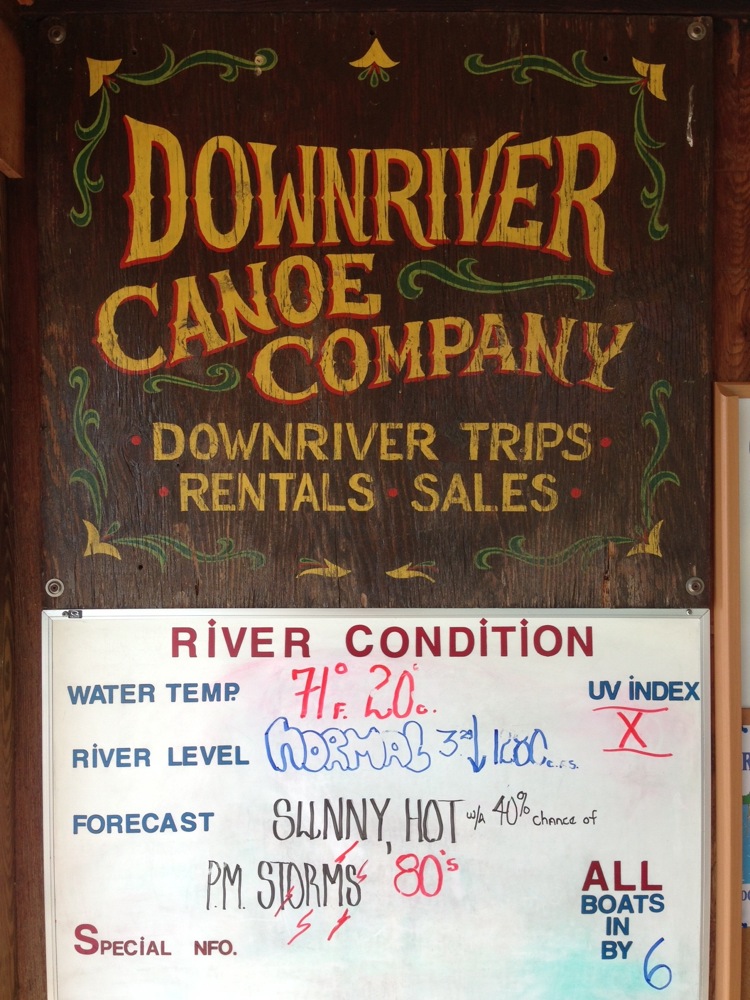 DOWNRIVER
CANOE
COMPANY
• DOWNRIVER TRIPS •
• RENTALS • SALES •
RiVER CONDiTiON
WATER TEMP. 71°F. 20°c.
UV iNDEX
X
RiVER LEVEL NORMAL ↓ c.f.s.
FORECAST SUNNY, HOT w/A 40% chance of
P.M. STORMS 80's
SPECIAL NFO.
ALL
BOATS
IN
BY 6